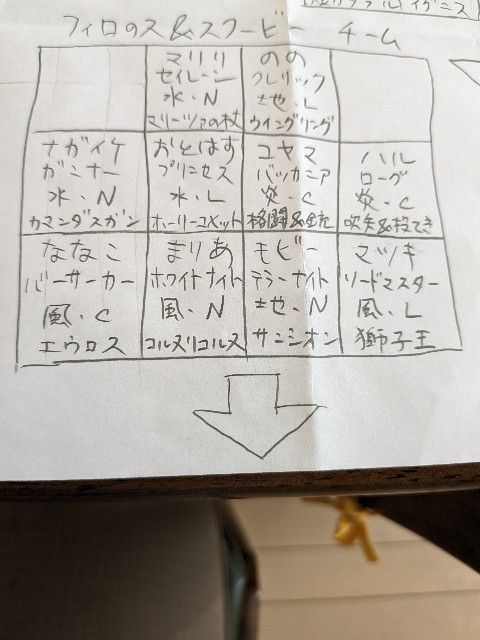 フィロのス&スクービー チーム
マリリ
セイレーン
水・N
マリーツァの杖
のの
クレリック
土地・L
ウイングリング
ナガイケ
ガンナー
水・N
カマンダスガン
おとはす
プリンセス
水・L
ホーリーコメット
コヤマ
バッカニア
炎・C
格闘&銃
ハル
ローグ
炎・C
吹矢&投てき
ななこ
バーサーカー
風・C
エウロス
まりあ
ホワイトナイト
風・N
コルヌリコルヌ
モビー
テラーナイト
土地・N
サンシオン
マツキ
ソードマスター
風・L
獅子王